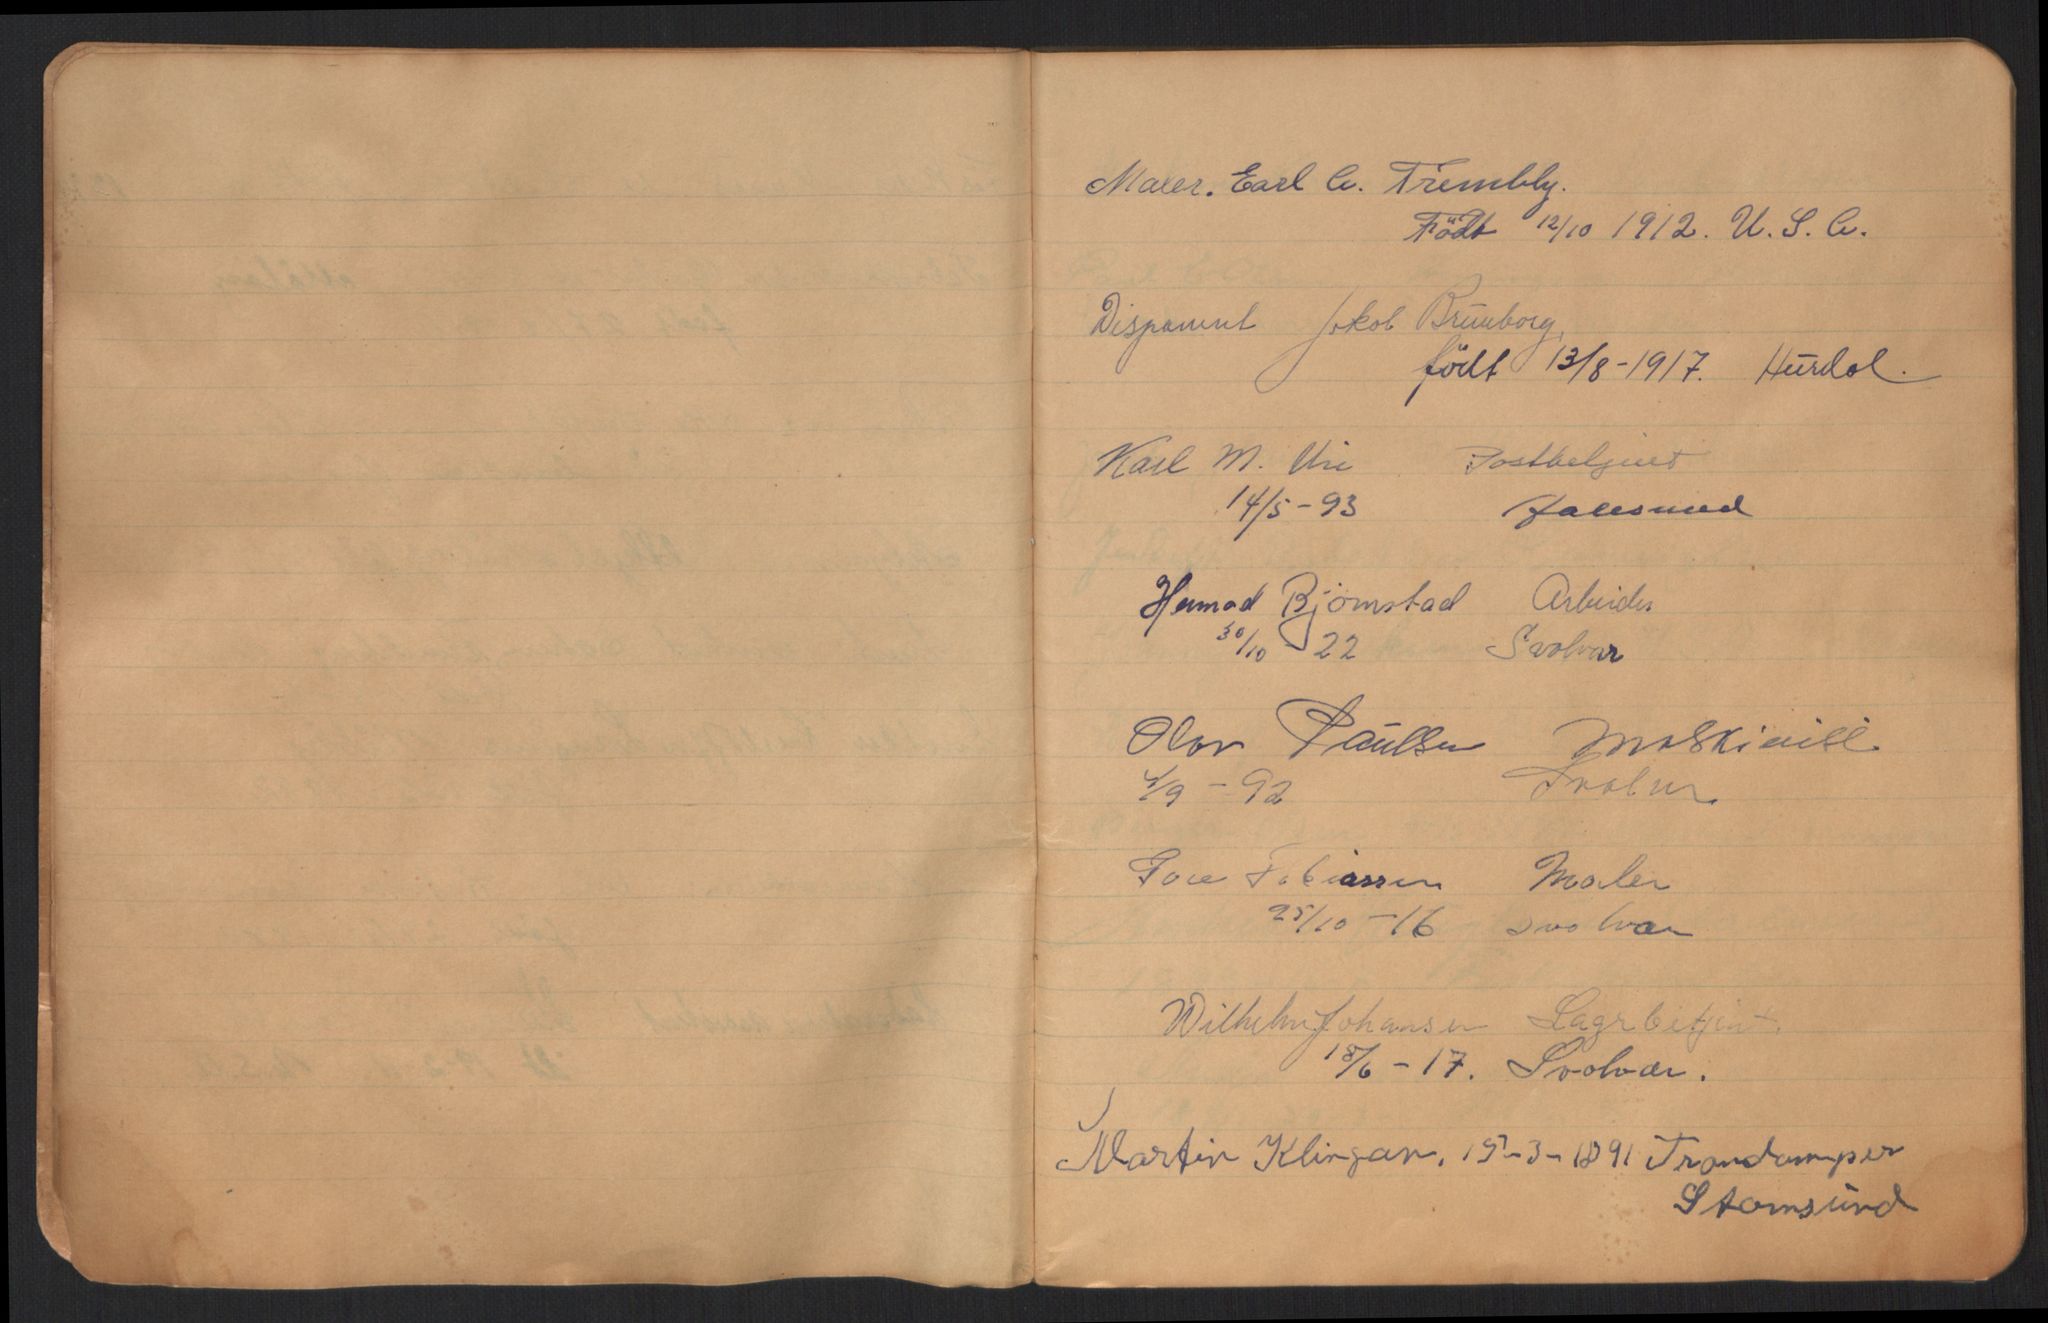 Maler. Earl A. Trembly.
Födt 12/10 1912. U. S. A.
Disponent Jakob Brunborg,
födt 13/8 - 1917. Hurdal.
Karl M. Uri Postbetjent
14/5 - 93
Bjørnstad Arbeider
30/10 22 Svolvær
Olav Paulsen Maskinist
4/9 - 92 Svolvær
Tore Tobiassen Maler
25/10 - 16 Svolvær
Wilhelm Johansen Lagrbetjent.
18/6 - 17. Svolvær.
Martin Klingan. 15-3-1891 Trandamper
Stamsund